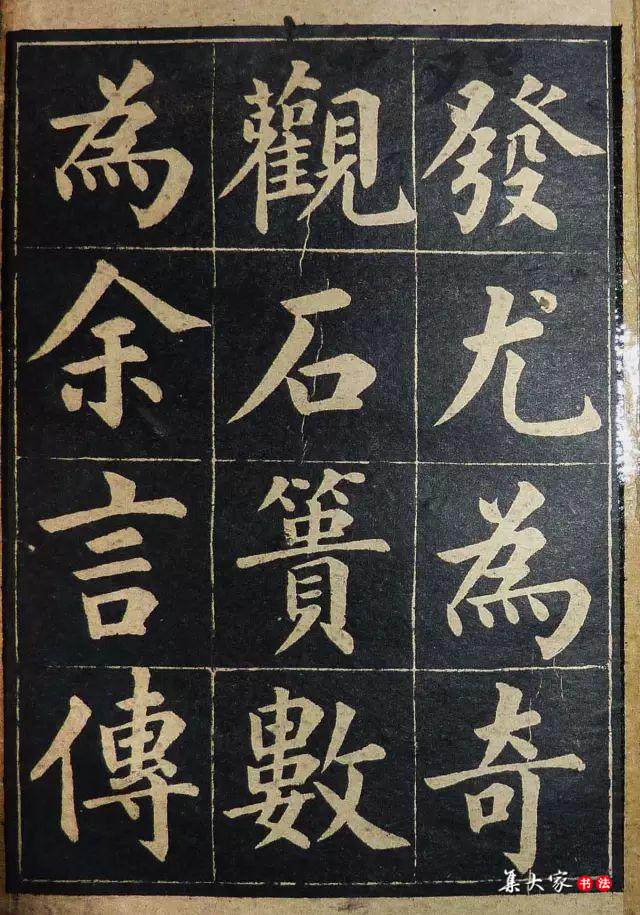 發尤為奇
觀石簣數
為余言傳
集大家书法